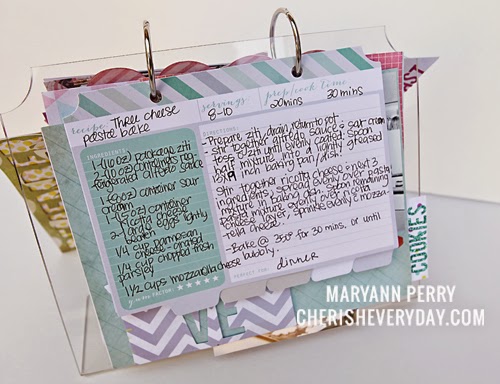 recipe: Three cheese
pasta bake
servings:
8-10
prep/cook time
20mins 30 mins
INGREDIENTS:
ziti
2 (10 oz) containers
refrigerated alfredo sauce
1 (8oz) container sour
cream
1 (15 oz) container
ricotta cheese
2 large eggs lightly
1/4 cup parmesan
cheese - grated
1/4 cup chopped fresh
parsley
1 1/2 cups mozzarella cheese
yum-o FACTOR:
DIRECTIONS:
-Prepare ziti, drain, return to pot.
- Stir together alfredo sauce & sour cream
toss w/ ziti until evenly coated. Spoon
half mixture into a lightly greased
inch baking pan/dish.
Stir together ricotta cheese & next 3
ingredients; spread evenly over pasta
mixture in baking dish. Spoon remaining
pasta mixture evenly over ricotta
cheese layer, sprinkle evenly c mozza-
rella cheese
-Bake @ 350° for 30 mins, or until
bubbly.
PERFECT FOR:
dinner
COOKIES
VE
MARYANN PERRY
CHERISHEVERYDAY.COM